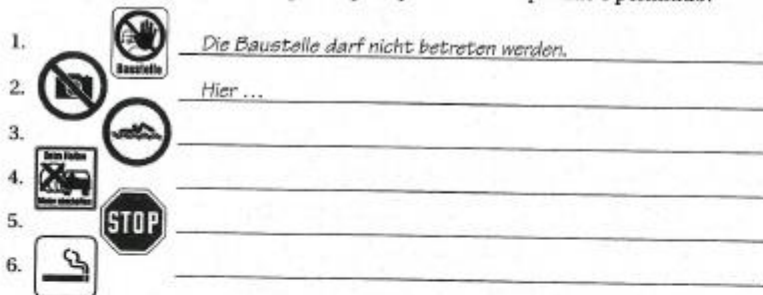 1. Baustelle Die Baustelle darf nicht betreten werden.
2. Hier ...
3.
4. Beim Halten Motor abstellen
5. STOP
6.